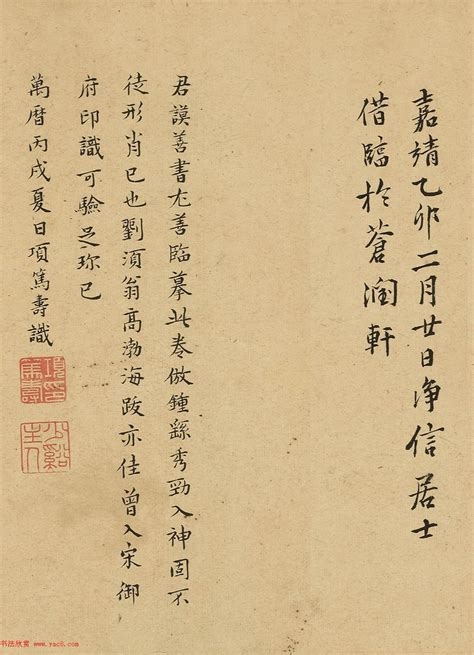 嘉靖乙卯二月廿日净信居士
借臨於蒼潤軒
君謨善書尤善臨摹此卷倣鍾繇秀勁入神固不
徒形肖已也劉須翁高渤海跋亦佳曾入宋御
府印識可驗足珎已
萬曆丙戌夏日項篤壽識
項篤壽印
少谿主人
书法欣赏 www.yac8.com